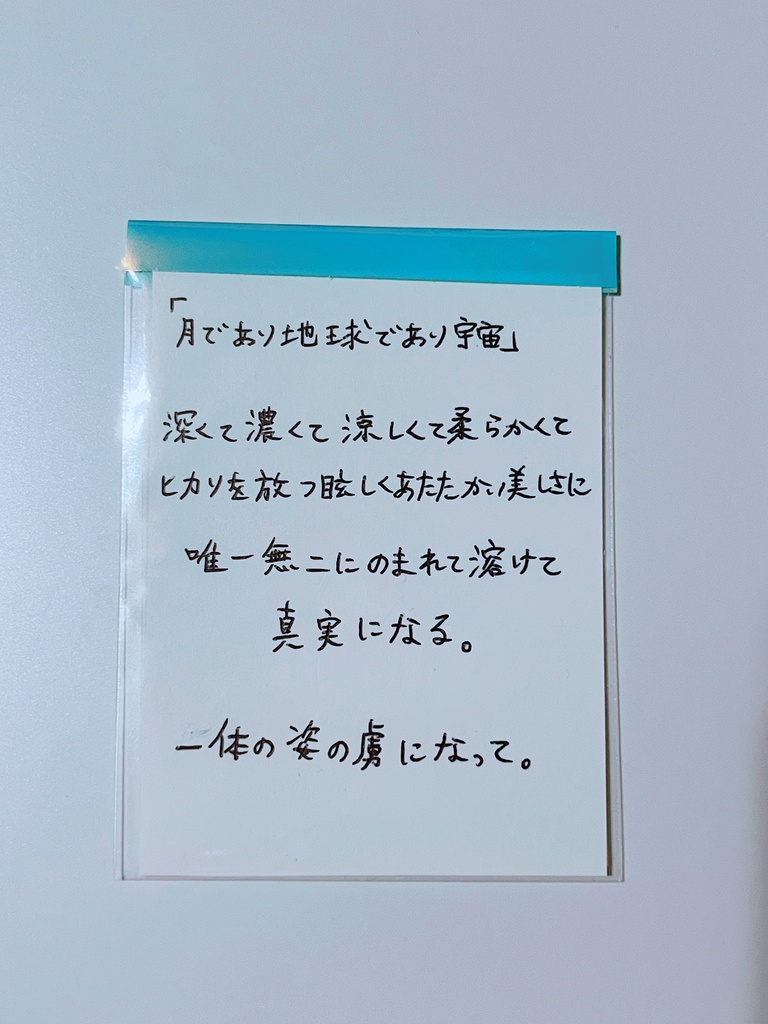 「月であり地球であり宇宙」
深くて濃くて涼しくて柔らかくて
ヒカリを放つ眩しくあたたかい美しさに
唯一無二にのまれて溶けて
真実になる。
一体の姿の虜になって。